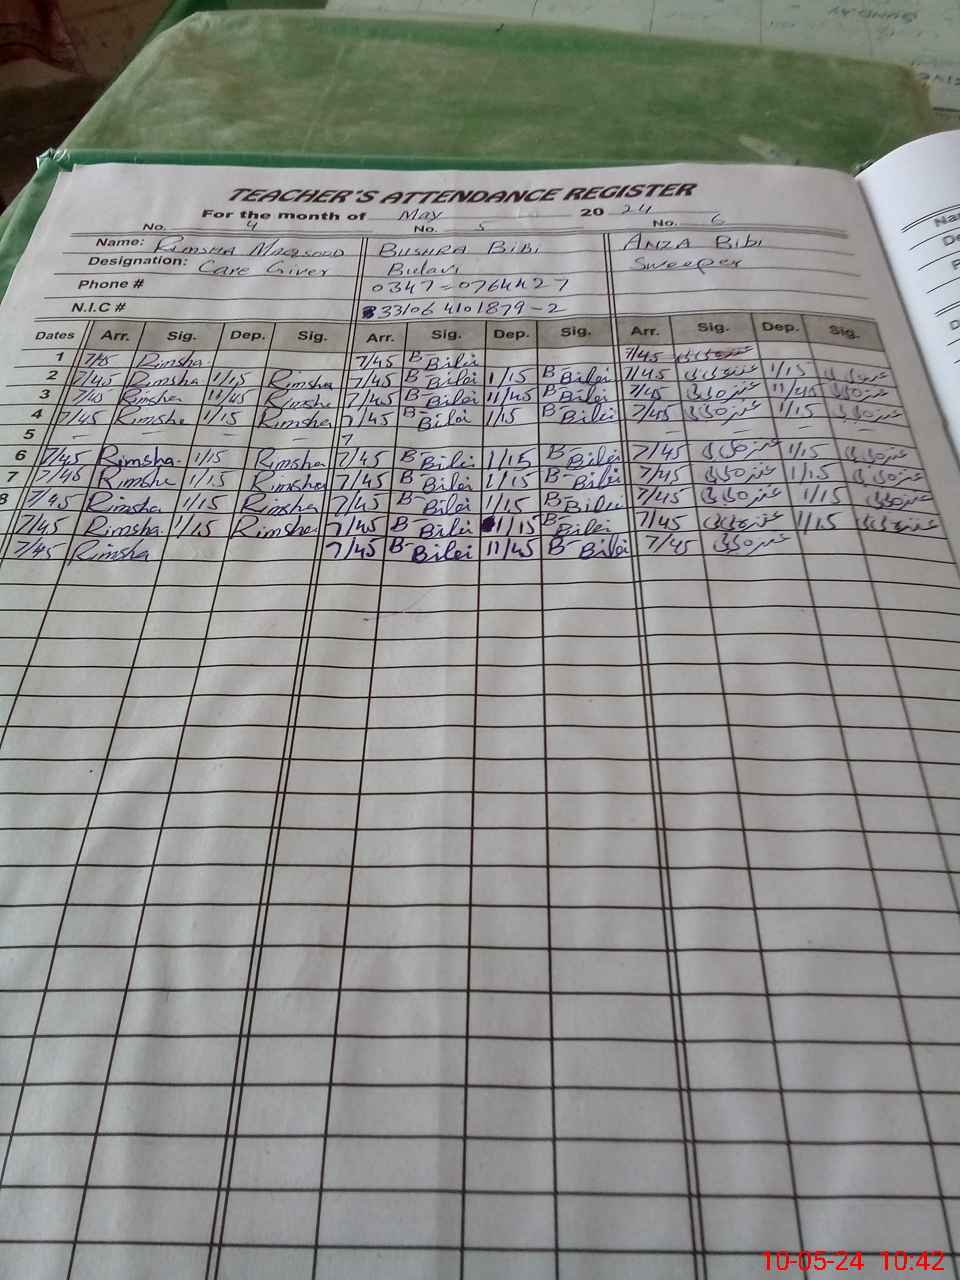 TEACHER'S ATTENDANCE REGISTER
For the month of May 20 24
No. 4 No. 5 No. 6
Name: Rimsha Maqsood Bushra Bibi Anza Bibi
Designation: Care Giver Bulavi Sweeper
Phone # 0347-0764427
N.I.C # 33106 4101879-2
Dates Arr. Sig. Dep. Sig. Arr. Sig. Dep. Sig. Arr. Sig. Dep. Sig.
1 7/45 Rimsha. 7/45 B-Bibi 7/45
2 7/45 Rimsha 1/15 Rimsha 7/45 B-Bibi 1/15 B-Bibi 7/45 عنزہ بی بی 1/15
3 7/45 Rimsha 11/45 Rimsha 7/45 B-Bibi 11/45 B-Bibi 7/45 عنزہ بی بی 11/45
4 7/45 Rimsha 1/15 Rimsha 7/45 B-Bibi 1/15 B-Bibi 7/45 عنزہ بی بی 1/15
5 – – – – 7 – – – –
6 7/45 Rimsha. 1/15 Rimsha 7/45 B-Bibi 1/15 B-Bibi 7/45 عنزہ بی بی 1/15
7 7/45 Rimsha 1/15 Rimsha 7/45 B-Bibi 1/15 B-Bibi 7/45 عنزہ بی بی 1/15
8 7/45 Rimsha 1/15 Rimsha 7/45 B-Bibi 1/15 B-Bibi 7/45 عنزہ بی بی 1/15
7/45 Rimsha 1/15 Rimsha 7/45 B-Bibi 1/15 B-Bibi 7/45 عنزہ بی بی 1/15
7/45 Rimsha 7/45 B-Bibi 11/45 B-Bibi 7/45 عنزہ بی بی
10-05-24 10:42